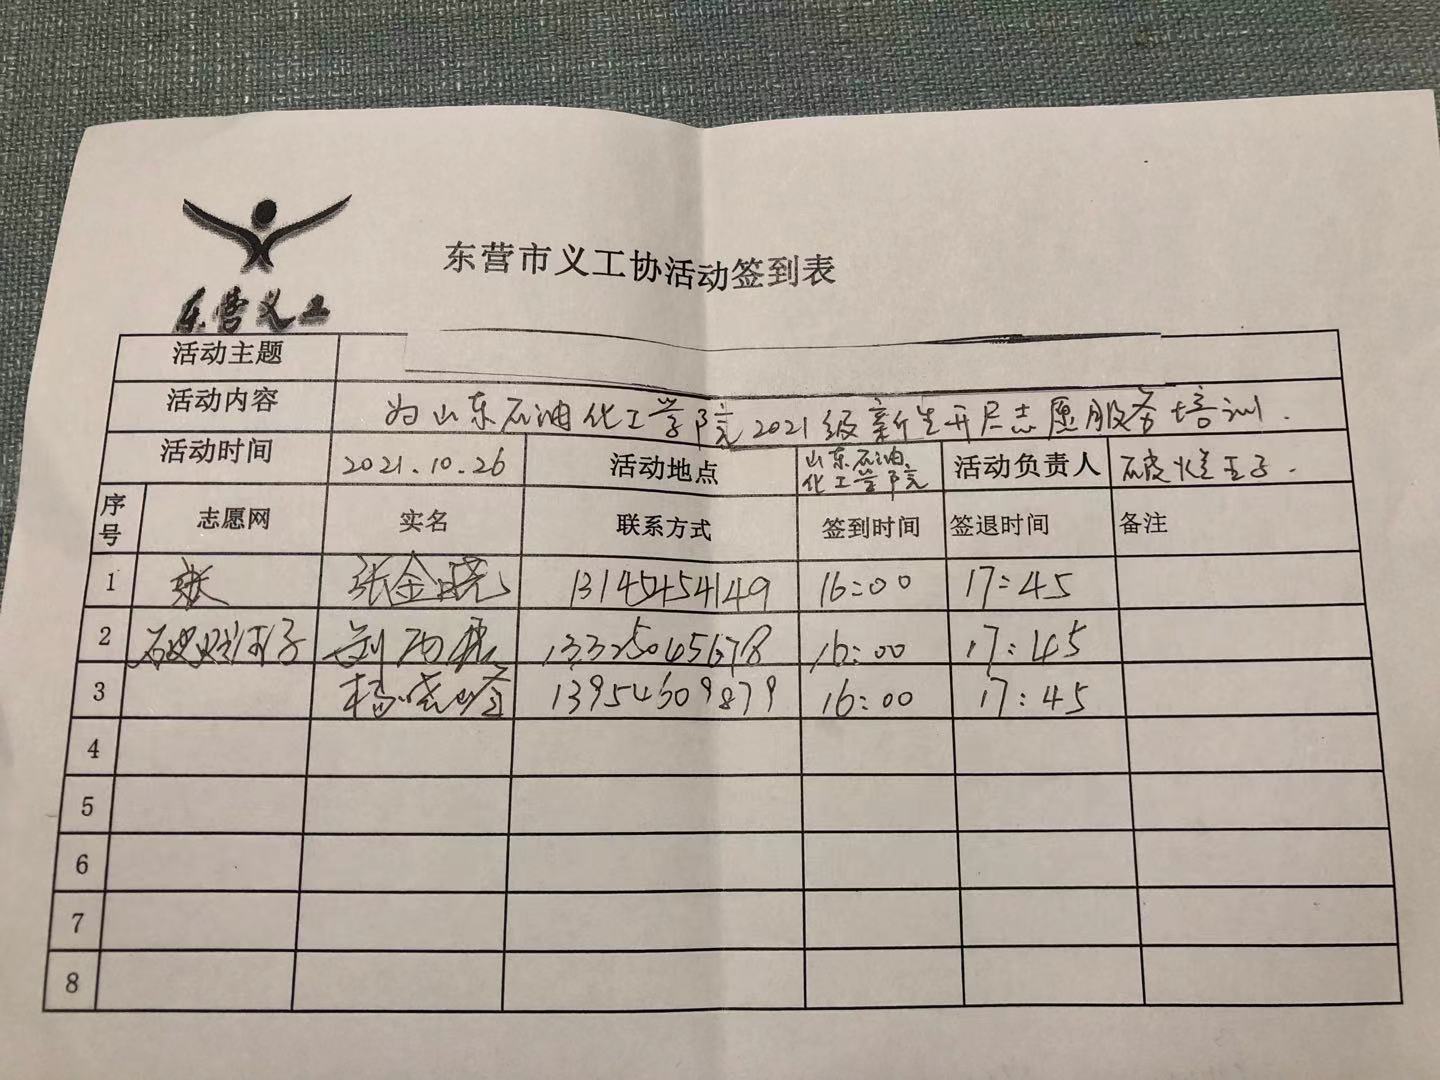 东营义工
东营市义工协活动签到表
活动主题
活动内容 为山东石油化工学院2021级新生开展志愿服务培训.
活动时间 2021.10.26 活动地点 山东石油化工学院 活动负责人
序号 志愿网 实名 联系方式 签到时间 签退时间 备注
1 张 张金晓 13145454149 16:00 17:45
2 13325045678 16:00 17:45
3 杨 13954609879 16:00 17:45
4
5
6
7
8